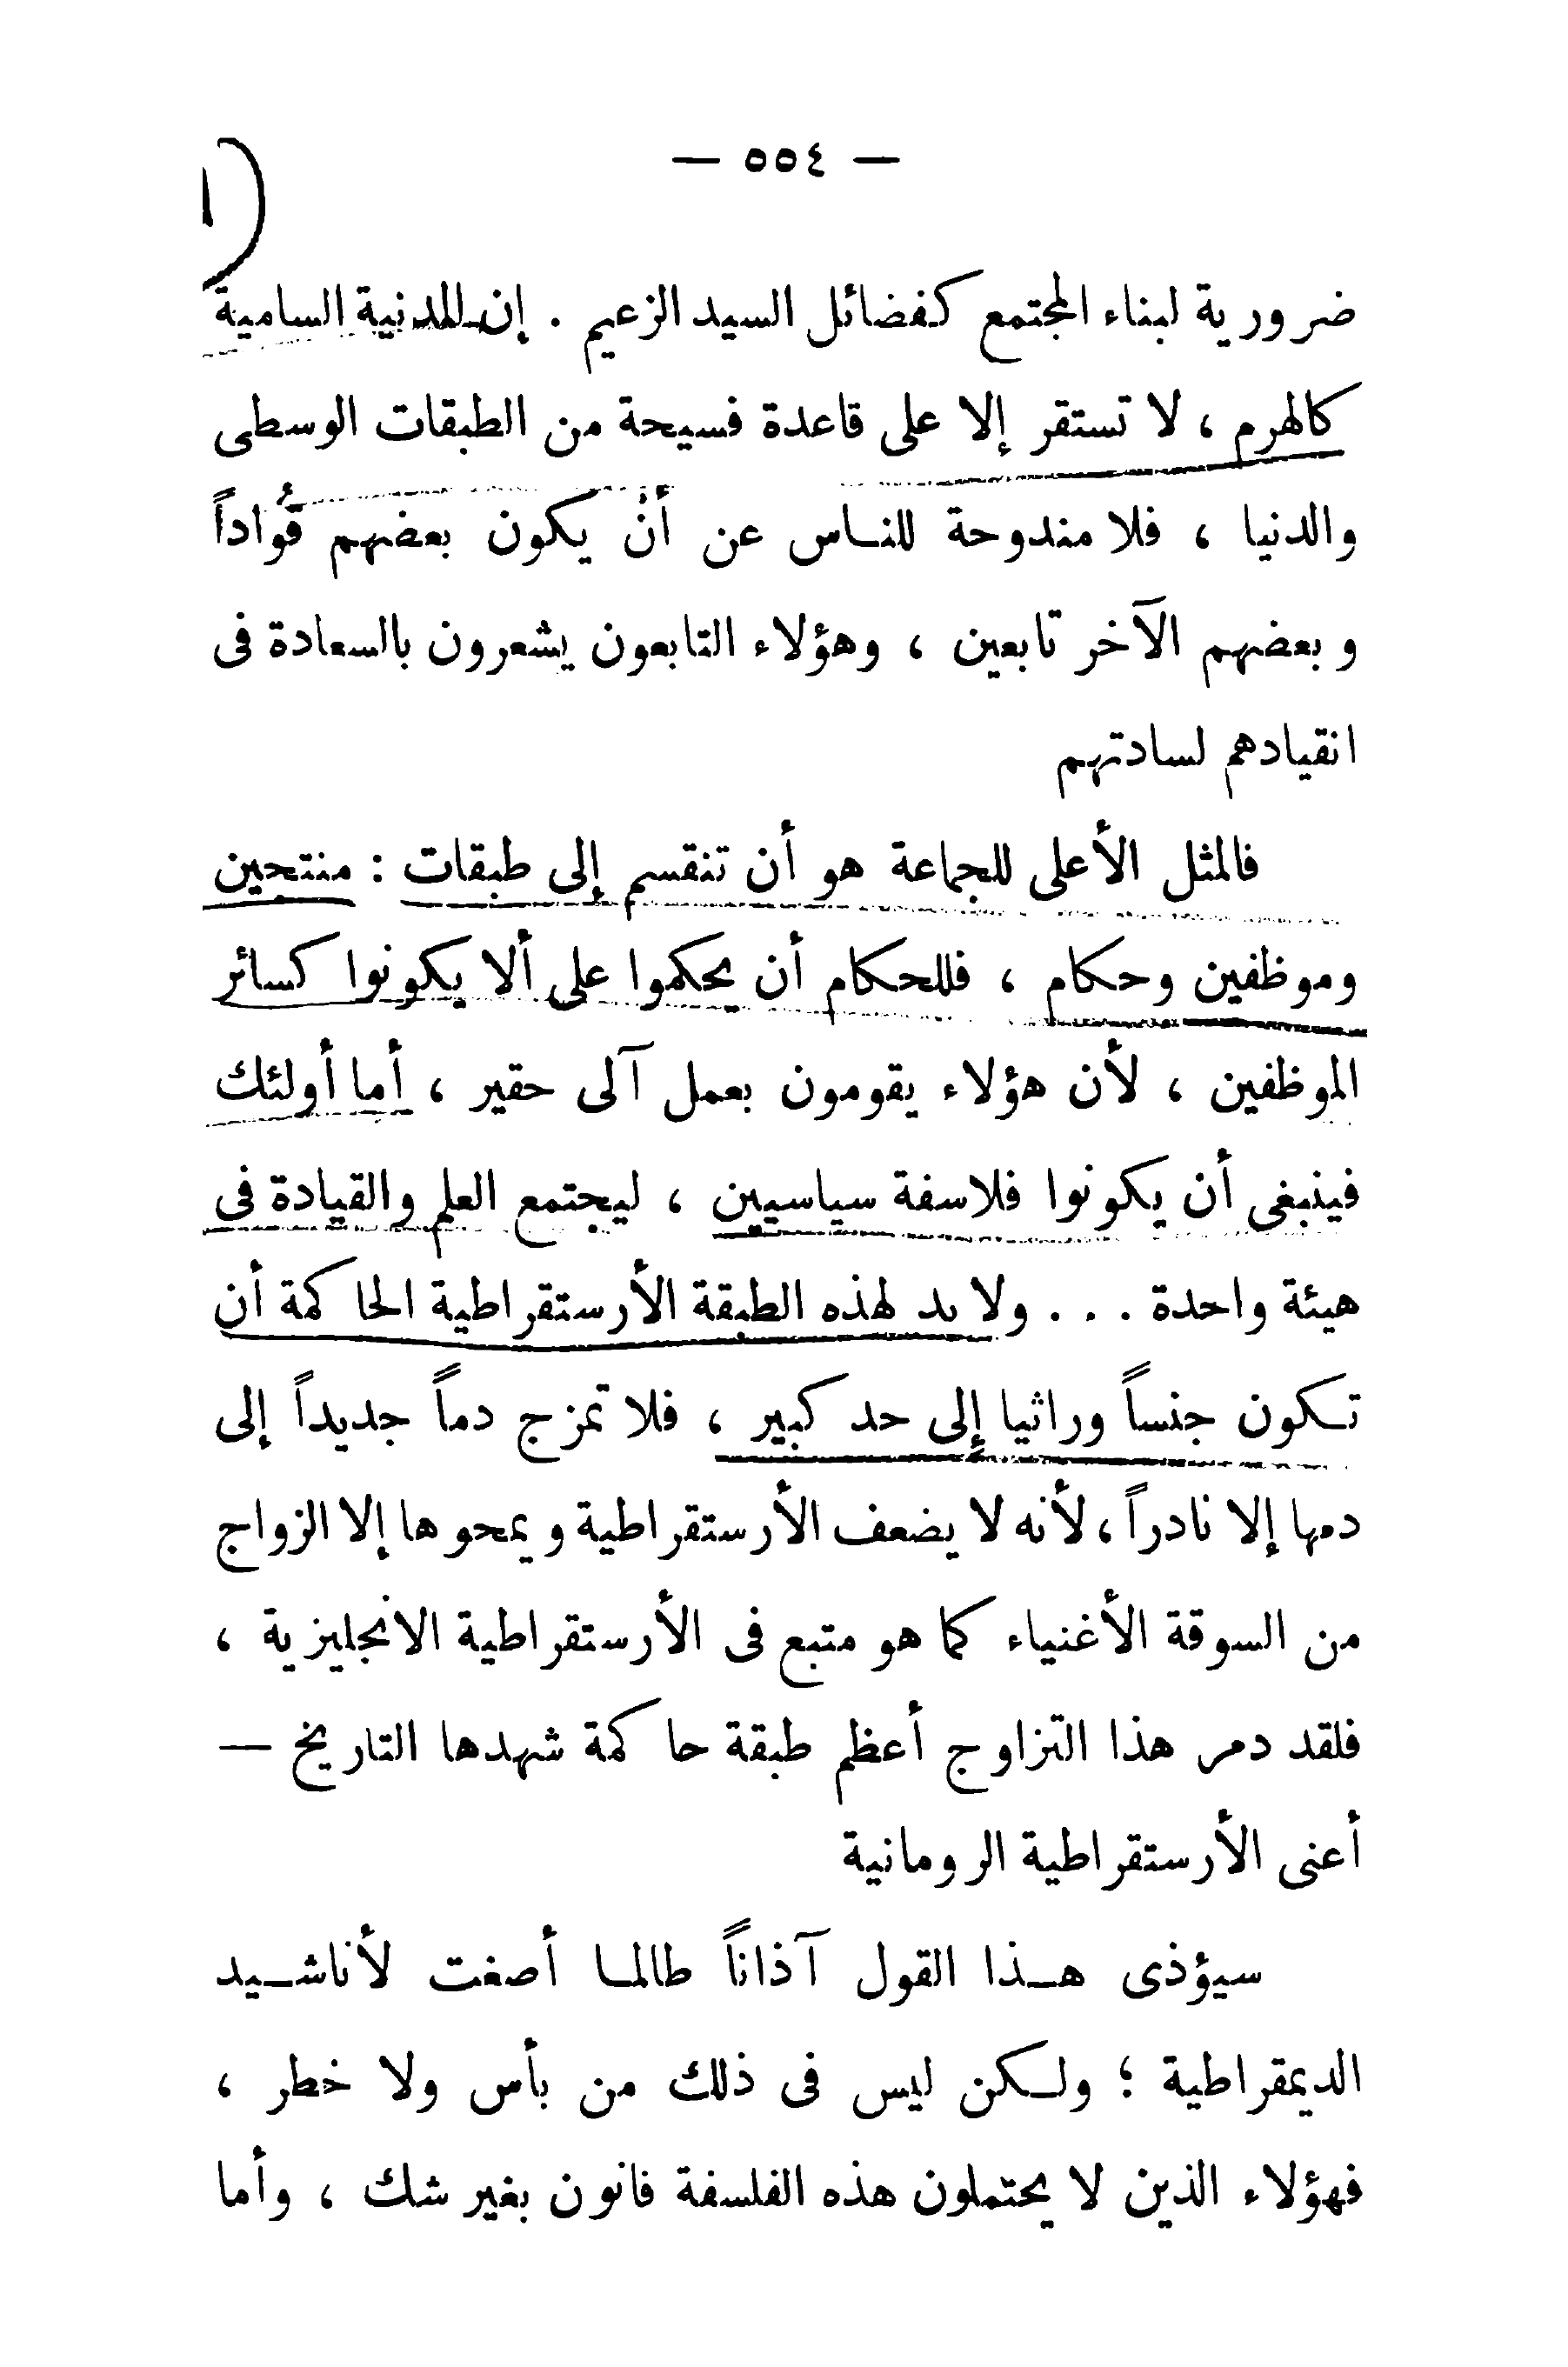 — ٥٥٤ —
ضرورية لبناء المجتمع كفضائل السيد الزعيم . إن المدنية السامية
كالهرم ، لا تستقر إلا على قاعدة فسيحة من الطبقات الوسطى
والدنيا ، فلا مندوحة للنـاس عن أن يكون بعضهم قُواداً
وبعضهم الآخر تابعين ، وهؤلاء التابعون يشعرون بالسعادة فى
انقيادهم لسادتهم
فالمثل الأعلى للجماعة هو أن تنقسم إلى طبقات : منتجين
وموظفين وحكام ، فللحكام أن يحكموا على ألا يكونوا كسائر
الموظفين ، لأن هؤلاء يقومون بعمل آلى حقير ، أما أولئك
فينبغى أن يكونوا فلاسفة سياسيين ، ليجتمع العلم والقيادة فى
هيئة واحدة . . . ولا بد لهذه الطبقة الأرستقراطية الحاكمة أن
تـكون جنساً وراثيا إلى حد كبير ، فلا تمزج دماً جديداً إلى
دمها إلا نادراً ، لأنه لا يضعف الأرستقراطية ويمحوها إلا الزواج
من السوقة الأغنياء كما هو متبع فى الأرستقراطية الانجليزية ،
فلقد دمر هذا التزاوج أعظم طبقة حاكمة شهدها التاريخ —
أعنى الأرستقراطية الرومانية
سيؤذى هـذا القول آذاناً طالمـا أصغت لأناشـيد
الديمقراطية ؛ ولـكن ليس فى ذلك من بأس ولا خطر ،
فهؤلاء الذين لا يحتملون هذه الفلسفة فانون بغير شك ، وأما